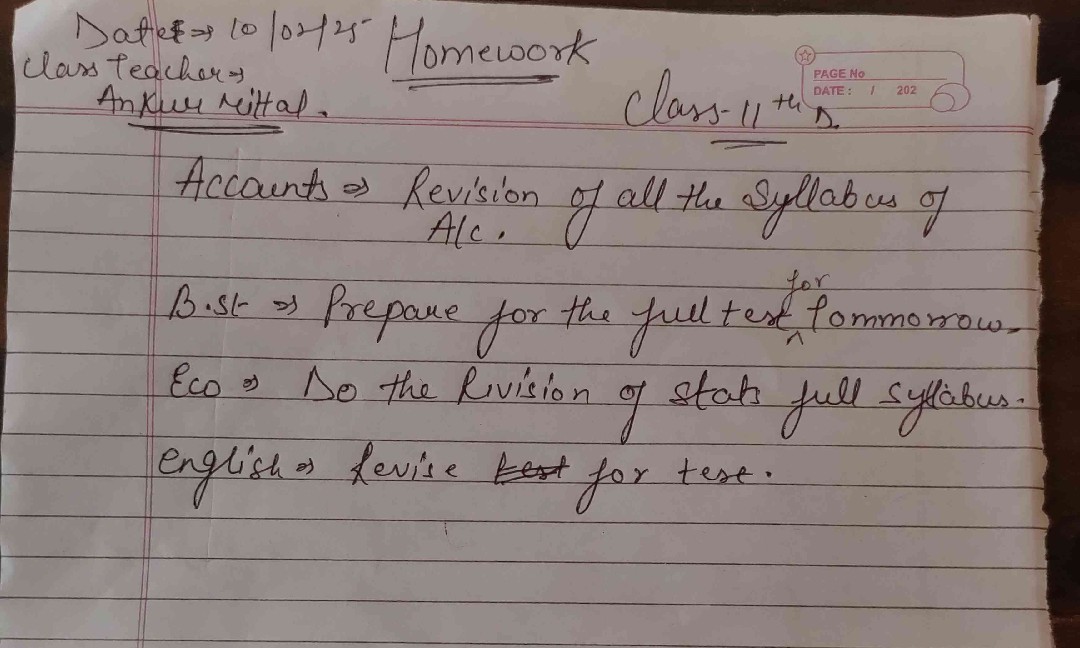 Date⇒ 10/02/25 Homework
Class Teacher⇒
Ankur Mittal.
PAGE No
DATE: / 202
Class-11th D.
Accounts ⇒ Revision of all the Syllabus of
A/c.
B.st ⇒ Prepare for the full test for Tommorrow.
Eco ⇒ Do the Revision of stats full syllabus.
English ⇒ Revise for test.